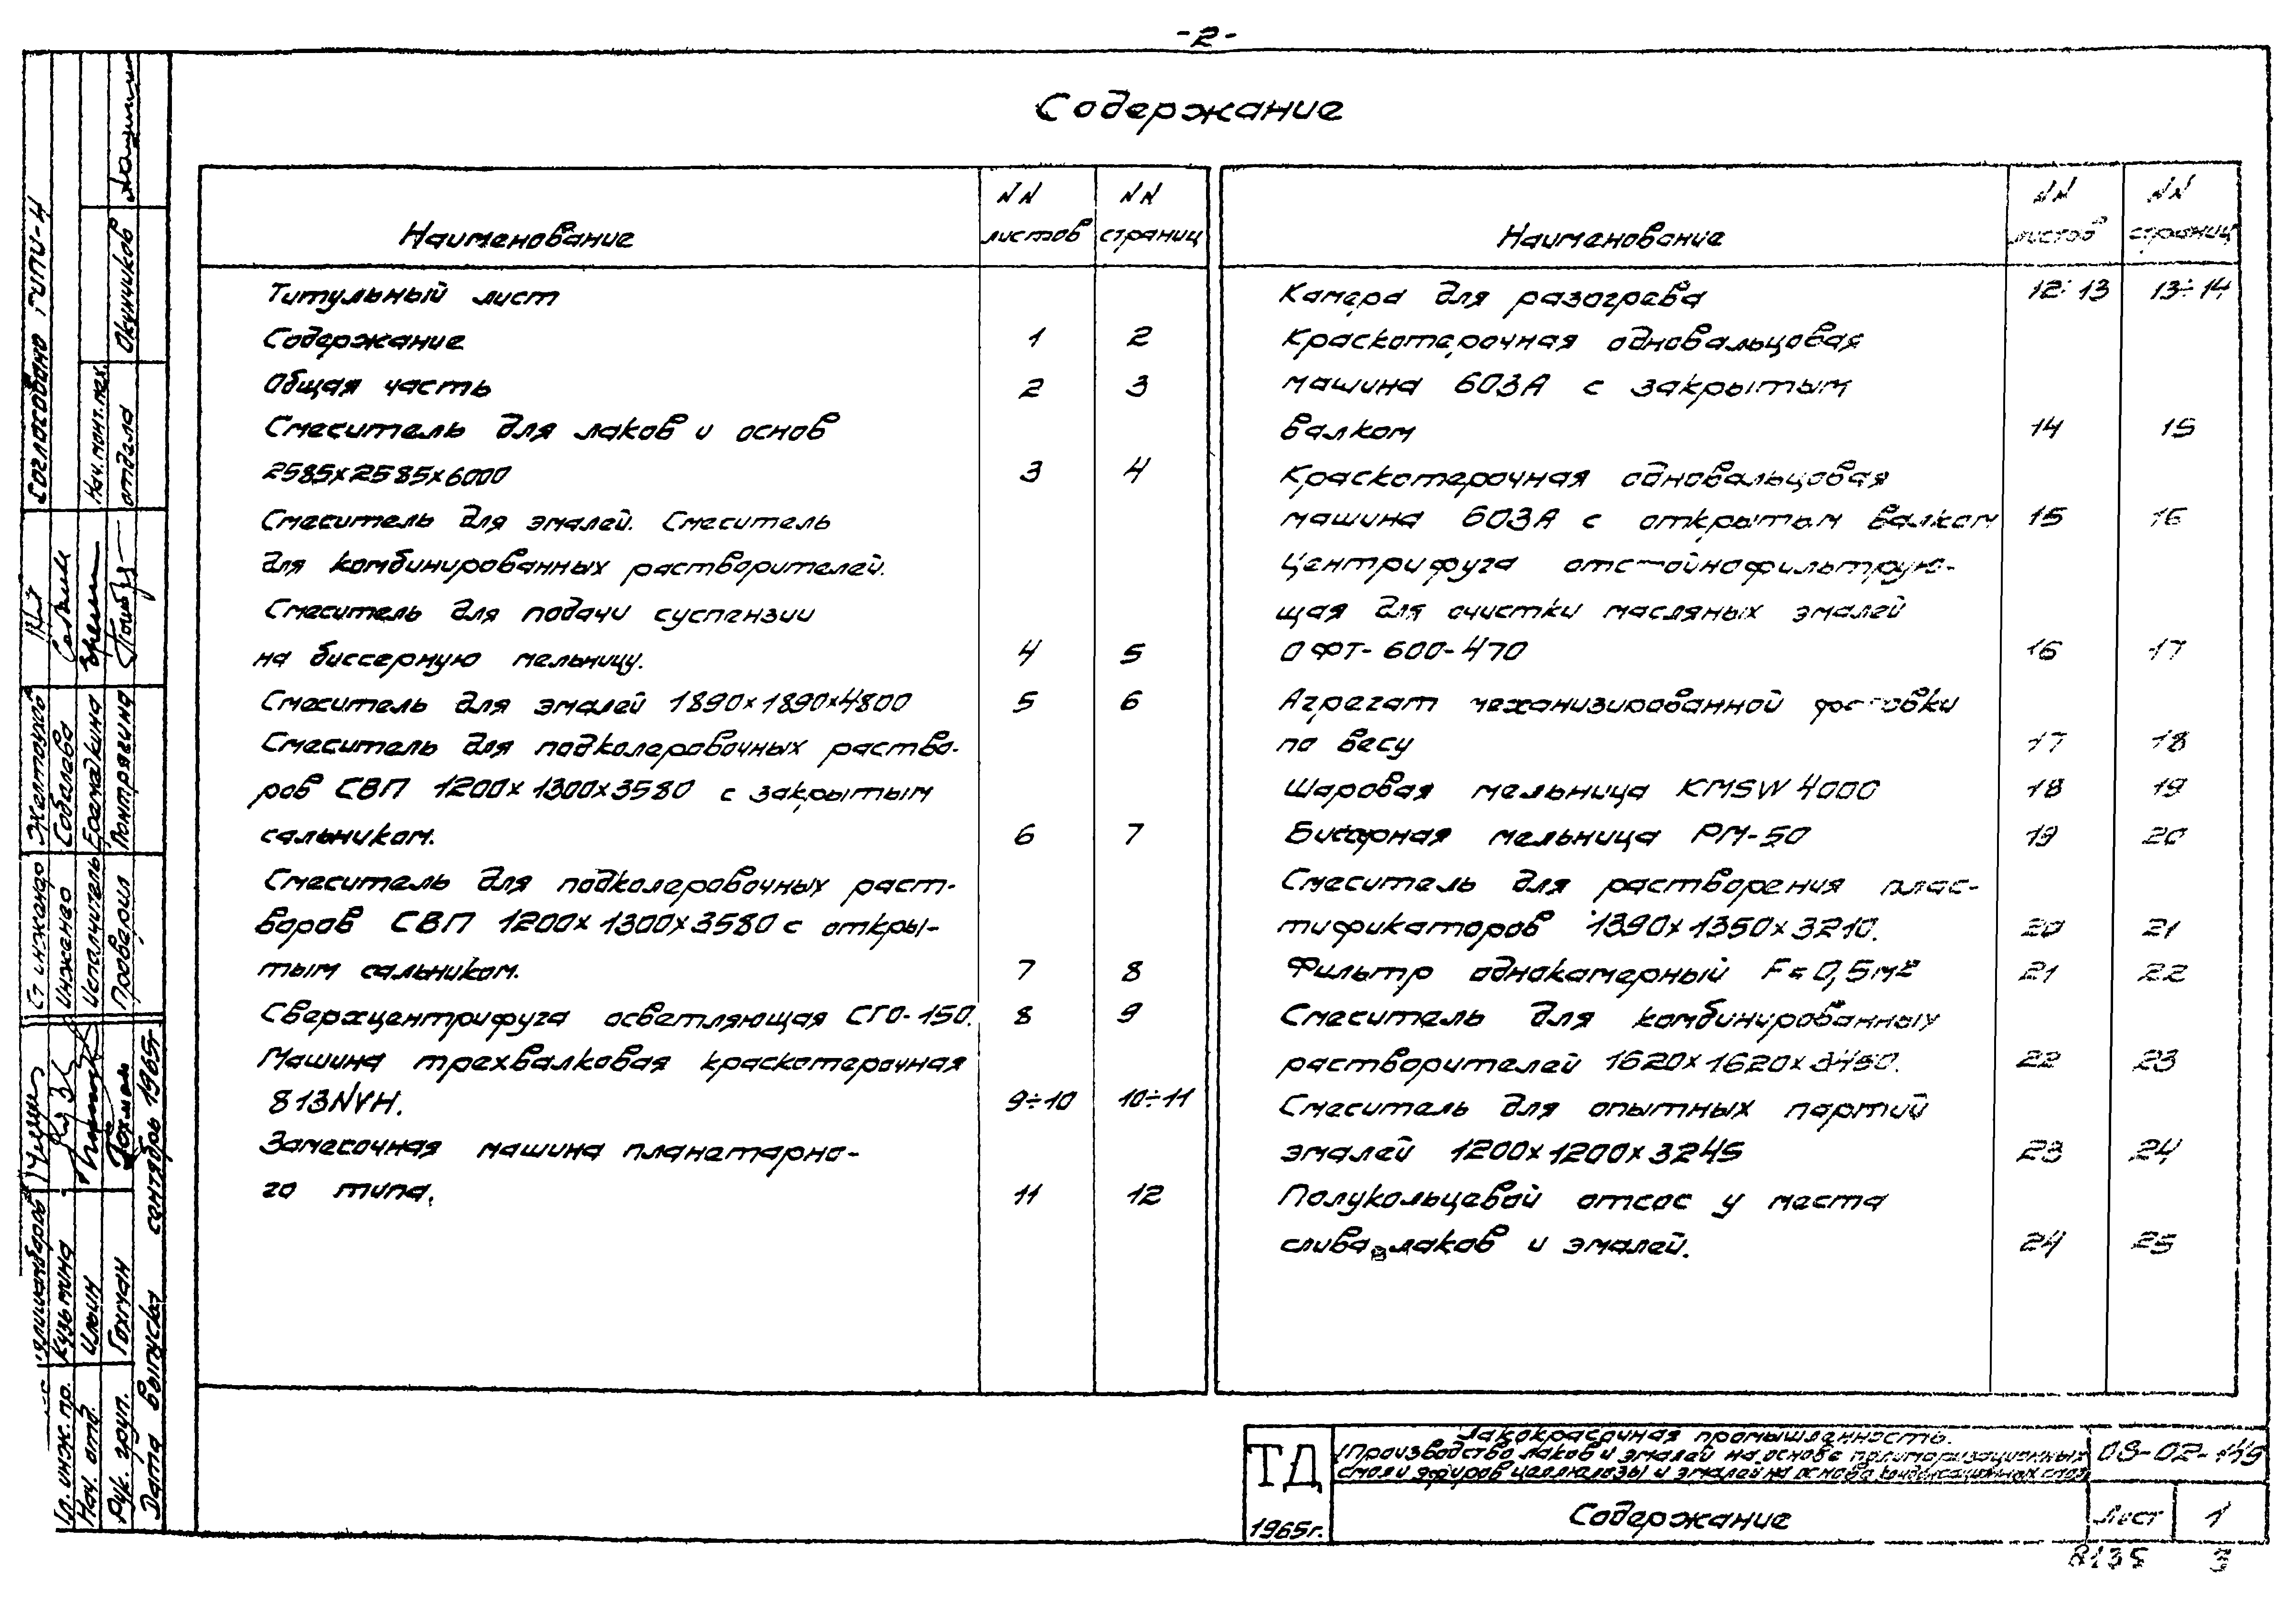 -2-
Содержание
Наименование
NN листов
NN страниц
Титульный лист
Содержание 1 2
Общая часть 2 3
Смеситель для лаков и основ
2585х2585х6000 3 4
Смеситель для эмалей. Смеситель
для комбинированных растворителей.
Смеситель для подачи суспензии
на биссерную мельницу. 4 5
Смеситель для эмалей 1890х1890х4800 5 6
Смеситель для подколеровочных раство-
ров СВП 1200х1300х3580 с закрытым
сальником. 6 7
Смеситель для подколеровочных раст-
воров СВП 1200х1300х3580 с откры-
тым сальником. 7 8
Сверхцентрифуга осветляющая СГО-150. 8 9
Машина трехвалковая краскотерочная
813NVH. 9÷10 10÷11
Замесочная машина планетарно-
го типа. 11 12
Наименование
NN листов
NN страниц
Камера для разогрева 12÷13 13÷14
Краскотерочная одновальцовая
машина 603А с закрытым
валком 14 15
Краскотерочная одновальцовая
машина 603А с открытым валком 15 16
Центрифуга отстойнофильтрую-
щая для очистки масляных эмалей
ОФТ-600-470 16 17
Агрегат механизированной фасовки
по весу 17 18
Шаровая мельница KMSW 4000 18 19
Бисерная мельница РМ-50 19 20
Смеситель для растворения плас-
тификаторов 1390х1350х3210. 20 21
Фильтр однокамерный F=0,5м² 21 22
Смеситель для комбинированных
растворителей 1620х1620х3450. 22 23
Смеситель для опытных партий
эмалей 1200х1200х3245 23 24
Полукольцевой отсос у места
слива лаков и эмалей. 24 25
ТД
1965г.
Лакокрасочная промышленность.
Производство лаков и эмалей на основе полимеризационных
смол и эфиров целлюлозы и эмалей на основе конденсационных смол
08-02-149
Содержание
Лист 1
8135 3
Согласовано ГИПИ-4
Нач. монт. мех.
отдела Окунчиков
Ст инженер Желтоухов
Инженер Соболева
Исполнитель Еремедкина
Проверил Понтрягина
Гл. инж. пр. Кузьмина
Нач. отд. Ильин
Рук. груп. Гохман
Дата выпуска сентябрь 1965г